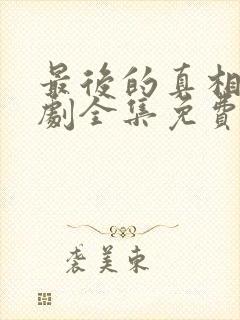 最後的真相
劇全集免費
裘美東